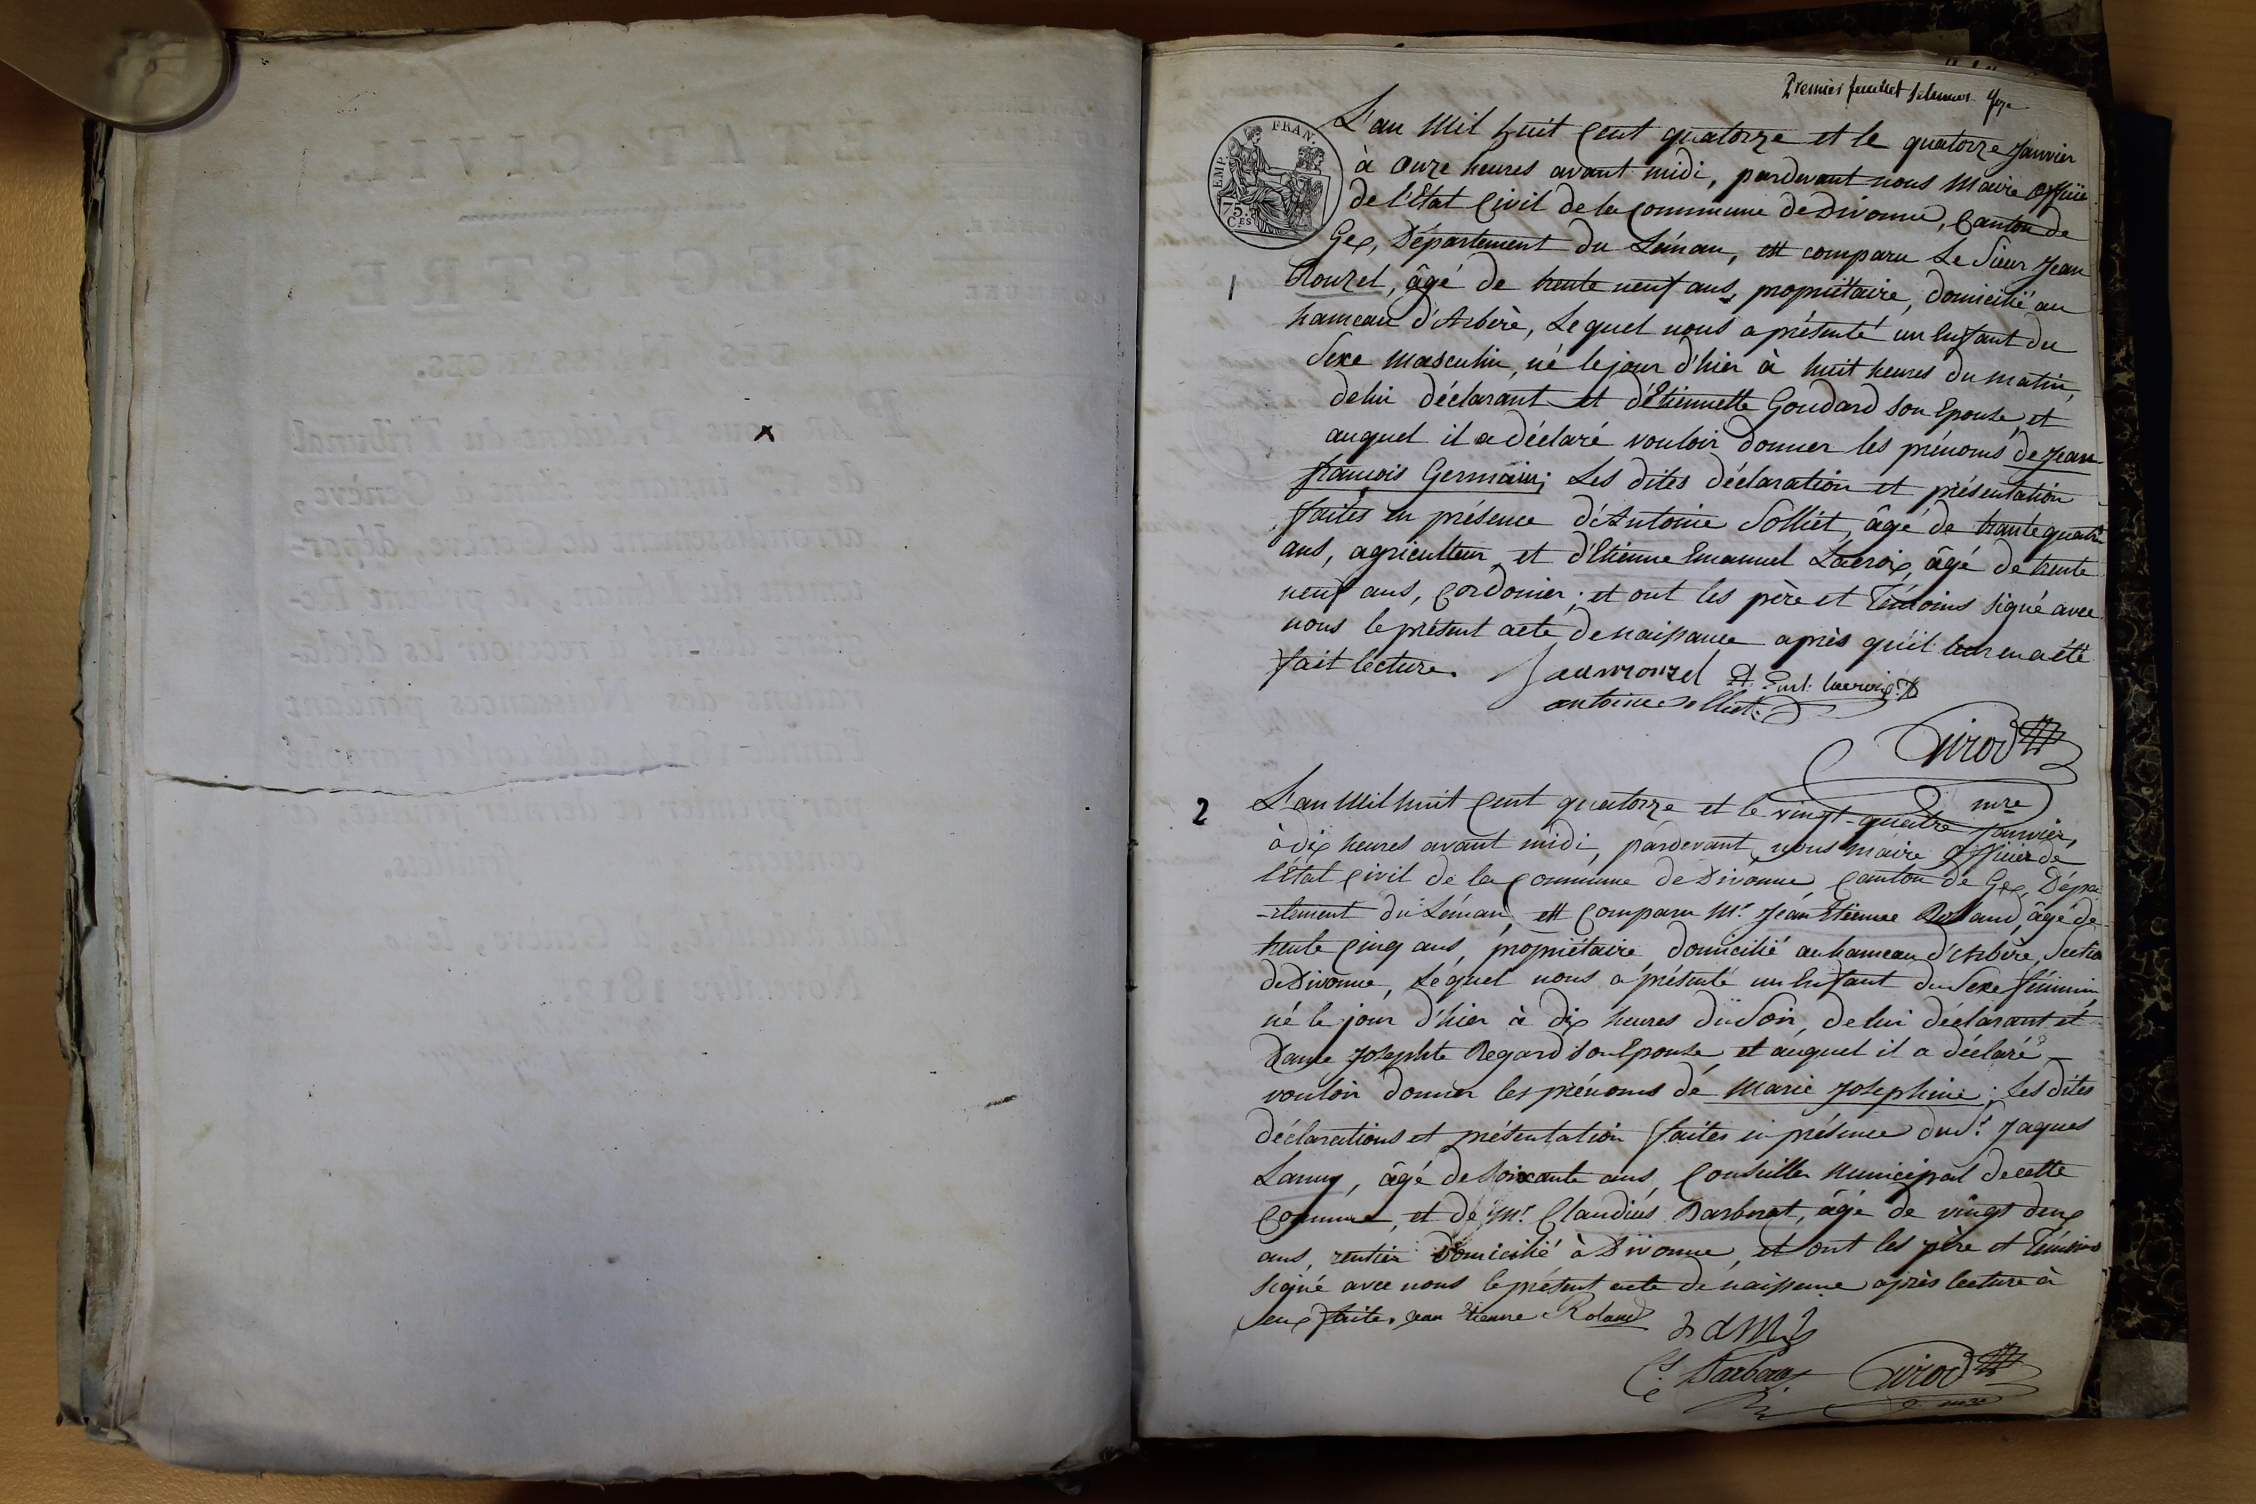 Premier feuillet
EMP. FRAN.
75.
CES
L'an Mil huit Cent quatorze et le quatorze Janvier
à Onze heures avant midi, pardevant nous Maire Officier
de l'Etat Civil de la Commune de Divonne, Canton de
Gex, Département du Léman, est comparu Le Sieur Jean
1
Rouzel, âgé de trente neuf ans, propriétaire, domicilié au
hameau d'Arbère, Lequel nous a présenté un Enfant du
Sexe Masculin, né le jour d'hier à huit heures du matin,
de lui déclarant et d'Etiennette Goudard son Epouse, et
auquel il a déclaré vouloir donner les prénoms de Jean
françois Germain; Les dites déclaration et présentation
faites en présence d'Antoine Solliet, âgé de trante quatre
ans, agriculteur, et d'Etienne Emanuel Lacroix, âgé de trente
neuf ans, Cordonier; et ont les père et Témoins signé avec
nous le présent acte de naissance après qu'il leur en a été
fait lecture. Jean rouzel lacroix
antoine solliet
Girod
mre
2
L'an Mil huit Cent quatorze et le vingt-quatre Janvier,
à dix heures avant midi, pardevant nous Maire Officier de
l'Etat Civil de la Commune de Divonne, Canton de Gex, Dépar
-tement du Léman, est Comparu Mr. Jean Etienne Rolland, âgé de
trente Cinq ans, propriétaire, domicilié au hameau d'Arbère, Section
de Divonne, Lequel nous a présenté un Enfant du Sexe féminin
né le jour d'hier à dix heures du Soir, de lui déclarant et
Dame Josephte Regard son Epouse, et auquel il a déclaré
vouloir donner les prénoms de Marie Josephine; Les dites
déclarations et présentation faites en présence du Sr. Jaques
Lamy, âgé de soixante ans, Conseiller Municipal de cette
Commune, et de Mr. Claudius Darberat, âgé de vingt deux
ans, rentier domicilié à Divonne, et ont les père et Témoins
signé avec nous le présent acte de naissance après lecture à
eux faite. Jean Etienne Roland
Lamy
Girod
mre